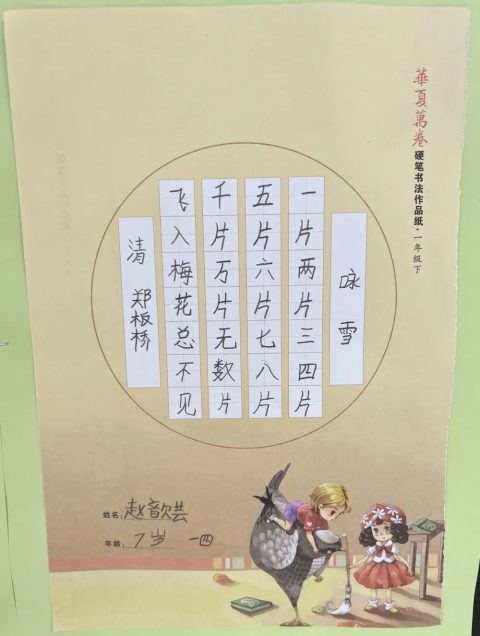 華夏萬卷 硬笔书法作品纸·一年级下
咏雪
一片两片三四片
五片六片七八片
千片万片无数片
飞入梅花总不见
清 郑板桥
姓名:赵歆芸
年龄:7岁 一四